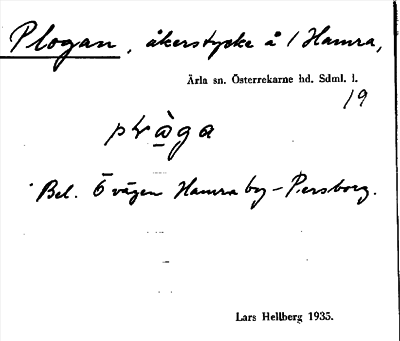 Plogan, åkerstycke å 1 Hamra,
Ärla sn. Österrekarne hd. Sdml. l.
19
Bel. Ö vägen Hamra by – Persborg.
Lars Hellberg 1935.